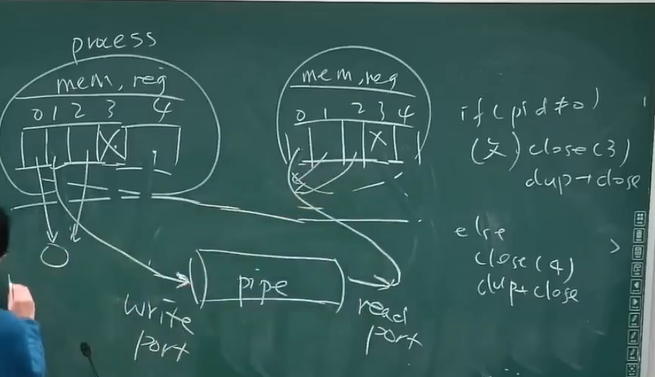 process
mem, reg
0 1 2 3 4
X
mem, reg
0 1 2 3 4
X
pipe
write
port
read
port
if (pid≠0)
close(3)
dup→close
else
close(4)
dup+close